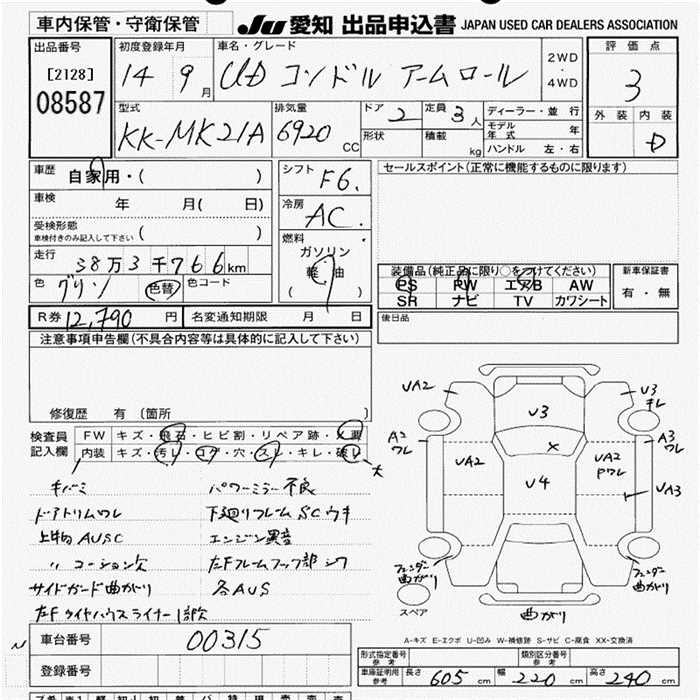 車内保管・守衛保管
JU 愛知 出品申込書 JAPAN USED CAR DEALERS ASSOCIATION
出品番号
[2128]
08587
初度登録年月
14 9月
車名・グレード
UD コンドル アームロール
2WD
・
4WD
評価点
3
外装 内装
D
型式
KK-MK21A
排気量
6920 CC
ドア 2
定員 3人
形状
積載 kg
ディーラー・並行
モデル年式 年
ハンドル 左・右
車歴
自家用・( )
車検
年 月( 日)
受検形態
車検付きのみ記入して下さい ( )
走行
38万3千766km
色 グリン 色替 色コード
シフト F6.
冷房 AC.
燃料
ガソリン
軽油
( )
セールスポイント(正常に機能するものに限ります)
装備品(純正品に限り○をつけてください)
PS PW エアB AW
SR ナビ TV カワシート
新車保証書
有・無
後日品
R券 12,790 円 名変通知期限 月 日
注意事項申告欄(不具合内容等は具体的に記入して下さい)
修復歴 有 (箇所 )
検査員記入欄
FW キズ・飛石・ヒビ割・リペア跡・×要
内装 キズ・汚レ・コゲ・穴・スレ・キレ・破レ 大
キバミ
ドアトリムワレ
上物AUSC
〃 コーション欠
サイドガード曲がり
左Fタイヤハウスライナー1部欠
パワーミラー不良
下廻りフレームSCウキ
エンジン異音
左Fフレームフック部シワ
各AUS
UA2
U3
U3
キレ
A2
ワレ
A3
ワレ
UA2
×
UA2
Pワレ
U4
UA3
フェンダー曲がり
フェンダー曲がり
スペア
曲がり
A-キズ E-エクボ U-凹み W-補修跡 S-サビ C-腐食 XX-交換済
車台番号 00315
登録番号
形式指定番号 参考
類別区分番号 参考
車庫証明用 参考 長さ 605 cm 幅 220 cm 高さ 240 cm